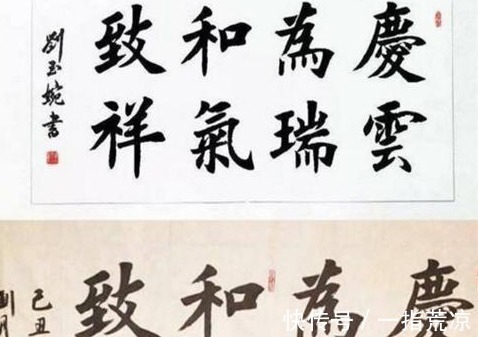 慶雲
為瑞
和氣
致祥
劉玉婉書
慶
為
和
致
己丑
劉
快传号 / 一指荒凉